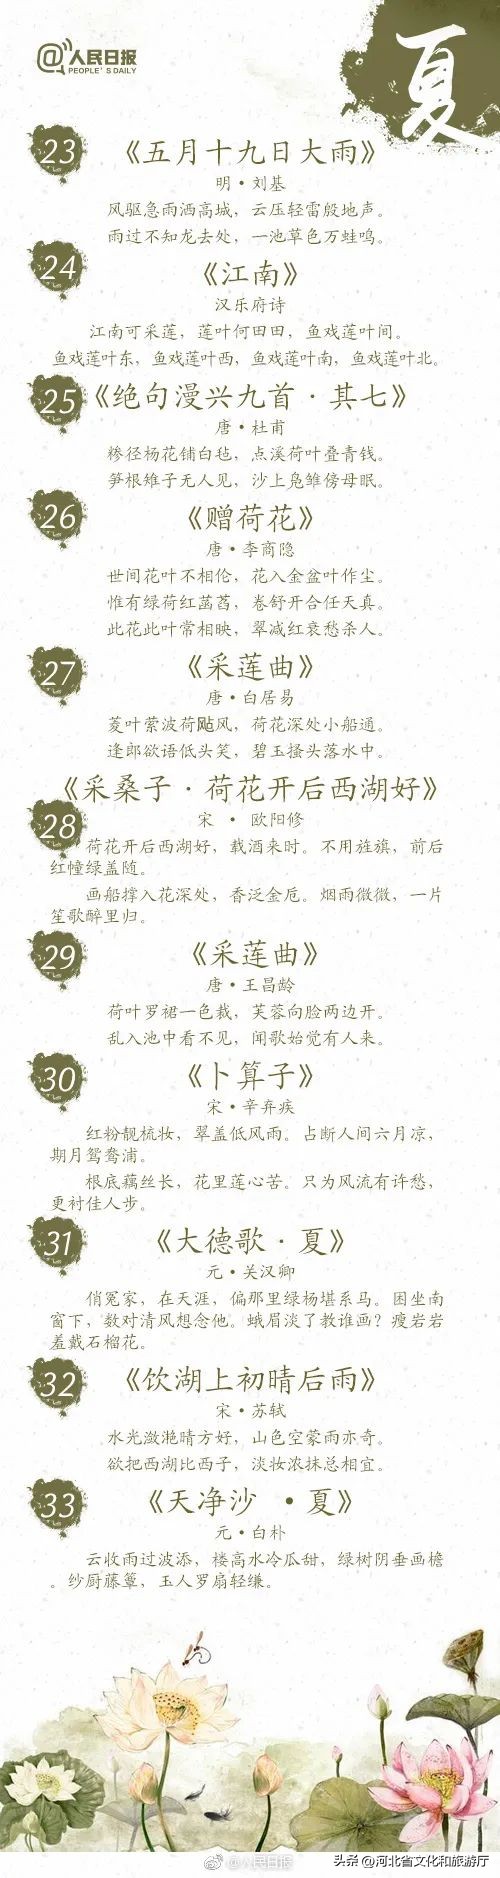 @人民日报
PEOPLE'S DAILY
夏
23
《五月十九日大雨》
明·刘基
风驱急雨洒高城，云压轻雷殷地声。
雨过不知龙去处，一池草色万蛙鸣。
24
《江南》
汉乐府诗
江南可采莲，莲叶何田田，鱼戏莲叶间。
鱼戏莲叶东，鱼戏莲叶西，鱼戏莲叶南，鱼戏莲叶北。
25
《绝句漫兴九首·其七》
唐·杜甫
糁径杨花铺白毡，点溪荷叶叠青钱。
笋根雉子无人见，沙上凫雏傍母眠。
26
《赠荷花》
唐·李商隐
世间花叶不相伦，花入金盆叶作尘。
惟有绿荷红菡萏，卷舒开合任天真。
此花此叶常相映，翠减红衰愁杀人。
27
《采莲曲》
唐·白居易
菱叶萦波荷飐风，荷花深处小船通。
逢郎欲语低头笑，碧玉搔头落水中。
《采桑子·荷花开后西湖好》
28
宋 · 欧阳修
荷花开后西湖好，载酒来时。不用旌旗，前后
红幢绿盖随。
画船撑入花深处，香泛金卮。烟雨微微，一片
笙歌醉里归。
29
《采莲曲》
唐·王昌龄
荷叶罗裙一色裁，芙蓉向脸两边开。
乱入池中看不见，闻歌始觉有人来。
30
《卜算子》
宋·辛弃疾
红粉靓梳妆，翠盖低风雨。占断人间六月凉，
期月鸳鸯浦。
根底藕丝长，花里莲心苦。只为风流有许愁，
更衬佳人步。
31
《大德歌·夏》
元·关汉卿
俏冤家，在天涯，偏那里绿杨堪系马。困坐南
窗下，数对清风想念他。蛾眉淡了教谁画？瘦岩岩
羞戴石榴花。
32
《饮湖上初晴后雨》
宋·苏轼
水光潋滟晴方好，山色空蒙雨亦奇。
欲把西湖比西子，淡妆浓抹总相宜。
33
《天净沙 ·夏》
元·白朴
云收雨过波添，楼高水冷瓜甜，绿树阴垂画檐
。纱厨藤簟，玉人罗扇轻缣。
@人民日报
头条 @河北省文化和旅游厅